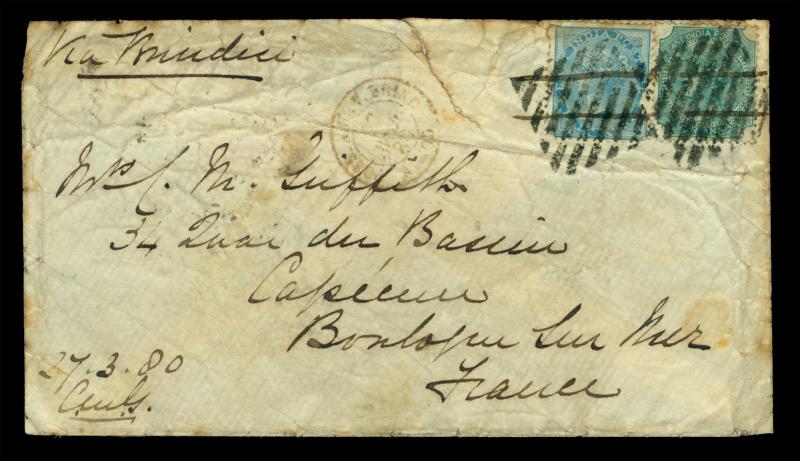 Via Brindisi
INDIA POSTAGE
INDIA POSTAGE
Mrs C. M. Griffith
34 Quai du Bassin
Capécure
Boulogne Sur Mer
France
27.3.80
C.M.G.